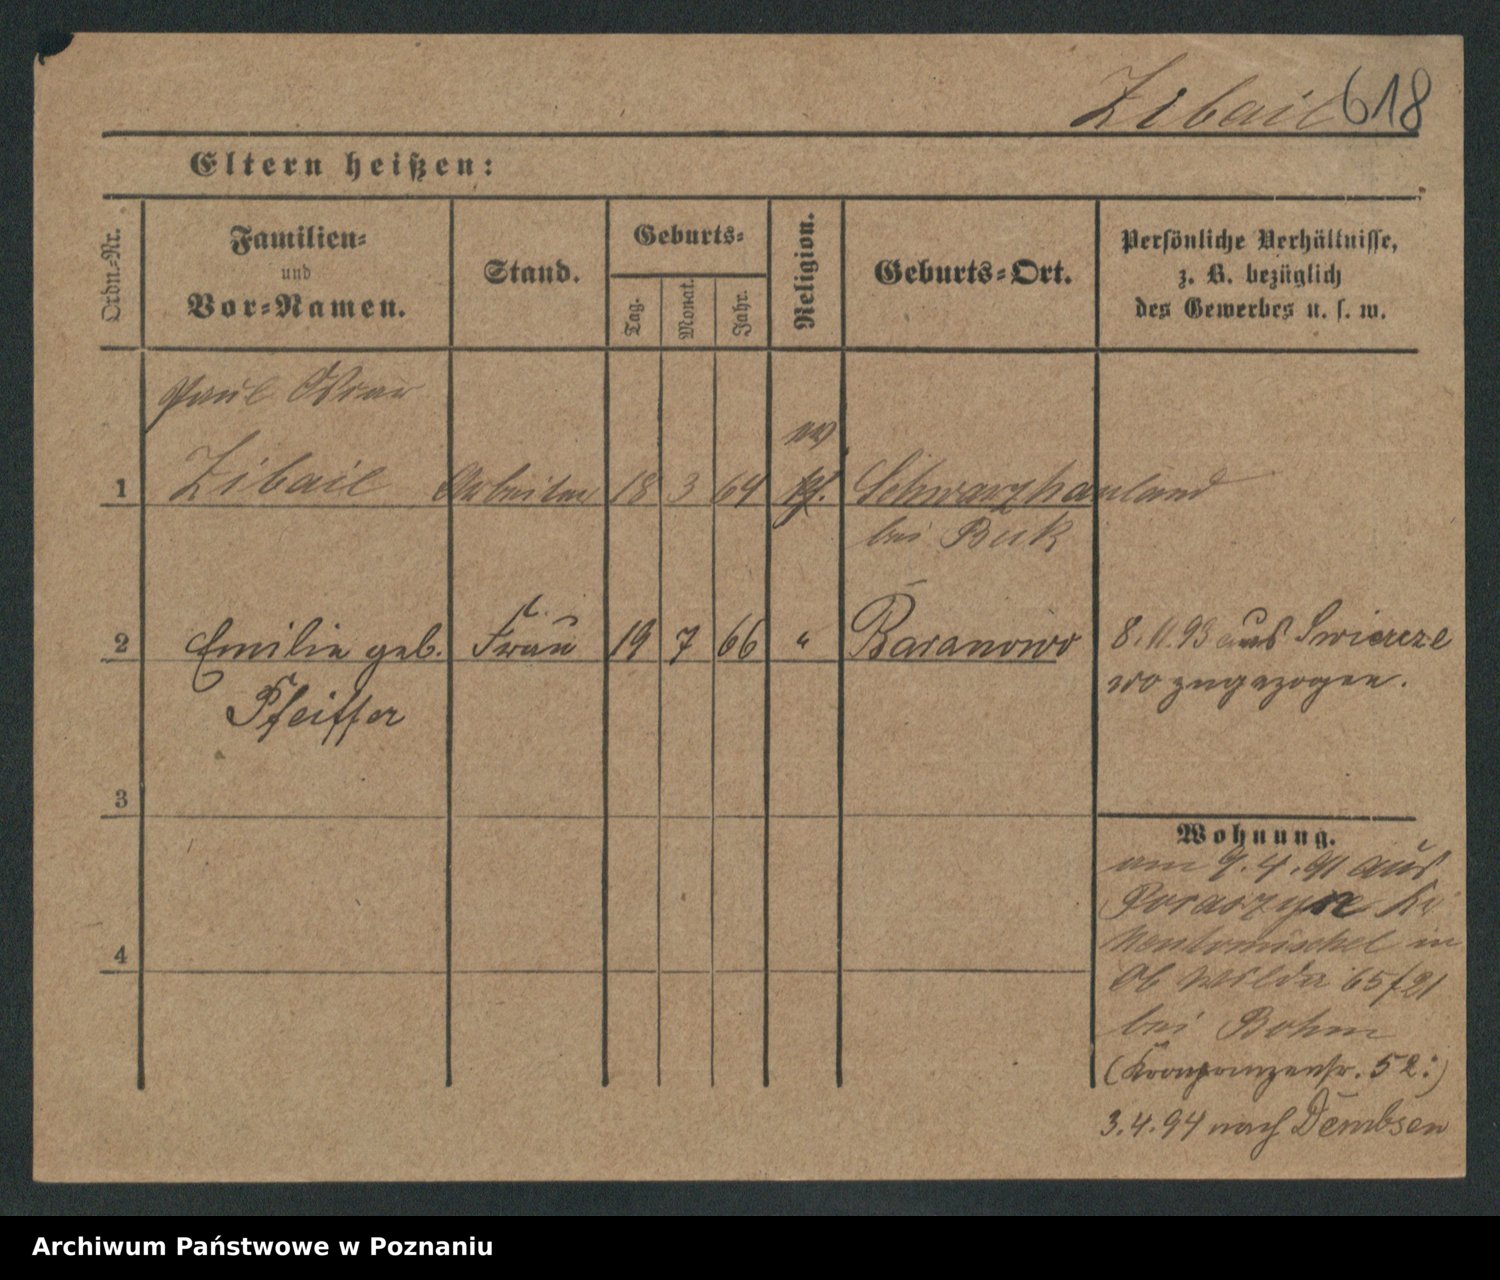 Zibail 618
Eltern heißen:
Ordn.-Nr.
Familien-
und
Vor-Namen.
Stand.
Geburts-
Tag.
Monat.
Jahr.
Religion.
Geburts-Ort.
Persönliche Verhältnisse,
z. B. bezüglich
des Gewerbes u. s. w.
Paul
ev
1 Zibail Arbeiter 18 3 64 Schwarzhauland
bei Buk
2 Emilie geb. Frau 19 7 66 " Baranowo 8.11.93 aus Swiercze
Pfeiffer wo zugezogen.
3
Wohnung.
am 9.4.91 aus
4
Neutomischel in
Ob Wilda 65/21
bei Bohm
(Kronprinzenstr. 52:)
3.4.94 nach Dembsen
Archiwum Państwowe w Poznaniu